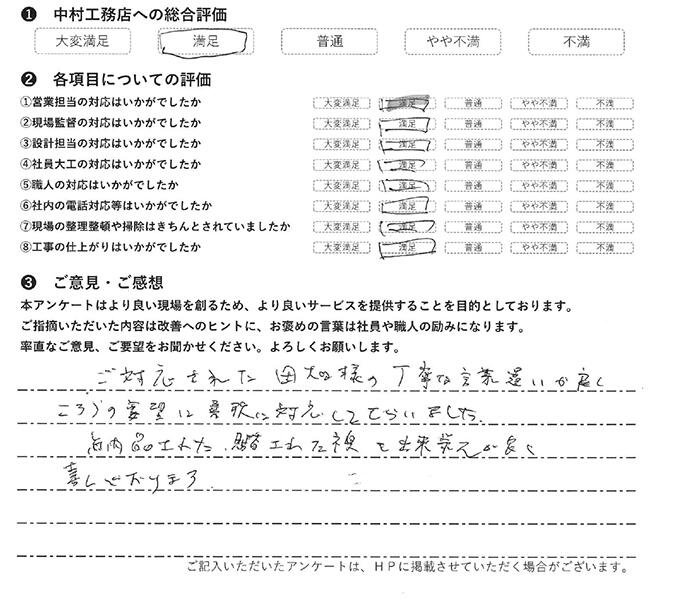 ❶ 中村工務店への総合評価
大変満足 満足 普通 やや不満 不満
❷ 各項目についての評価
①営業担当の対応はいかがでしたか 大変満足 満足 普通 やや不満 不満
②現場監督の対応はいかがでしたか 大変満足 満足 普通 やや不満 不満
③設計担当の対応はいかがでしたか 大変満足 満足 普通 やや不満 不満
④社員大工の対応はいかがでしたか 大変満足 満足 普通 やや不満 不満
⑤職人の対応はいかがでしたか 大変満足 満足 普通 やや不満 不満
⑥社内の電話対応等はいかがでしたか 大変満足 満足 普通 やや不満 不満
⑦現場の整理整頓や掃除はきちんとされていましたか 大変満足 満足 普通 やや不満 不満
⑧工事の仕上がりはいかがでしたか 大変満足 満足 普通 やや不満 不満
❸ ご意見・ご感想
本アンケートはより良い現場を創るため、より良いサービスを提供することを目的としております。
ご指摘いただいた内容は改善へのヒントに、お褒めの言葉は社員や職人の励みになります。
率直なご意見、ご要望をお聞かせください。よろしくお願いします。
ご対応された 様の丁寧な言葉遣いが良く
こちらの要望に柔軟に対応してもらいました。
納品された も出来栄えが良く
喜んでおります
ご記入いただいたアンケートは、ＨＰに掲載させていただく場合がございます。